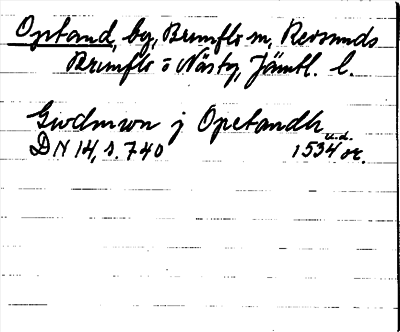 Optand, by, Brunflo sn, Revsunds
Brunflo o Näs tg, Jämtl. l.
Gudmwn j Opetandh
DN 14, s. 740 1534 u.d. or.